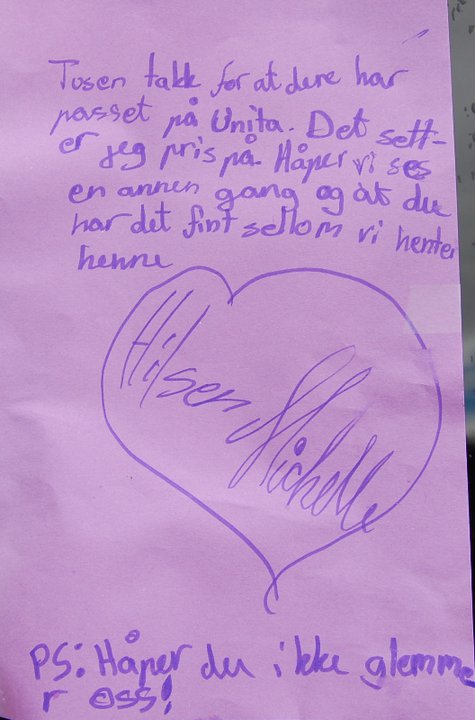 Tusen takk for at dere har
passet på Unita. Det sett-
er jeg pris på. Håper vi ses
en annen gang og at du
har det fint sellom vi henter
henne
Hilsen Michelle
PS: Håper du ikke glemme
r oss!